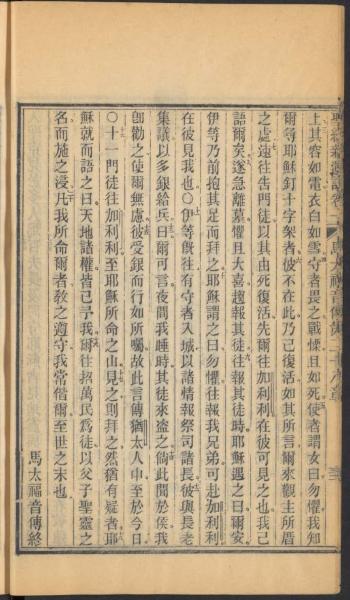 馬太福音傳第二十八章
上其容如電衣白如雪守者畏之戰慄且如死使者謂女曰勿懼我知
爾等耶穌釘十字架者彼不在此乃已復活如其所言爾來觀主所厝
之處遠往告門徒以其由死復活先爾往加利利在彼可見之也我已
語爾矣遂急離墓懼且大喜趨報其徒往報其徒時耶穌遇之曰爾安
伊等乃前抱其足而拜之耶穌謂之曰勿懼往報我兄弟可赴加利利
在彼見我也〇伊等旣往有守者入城以諸情報祭司諸長彼與長老
集議以多銀給兵曰爾可言夜間我睡時其徒來盜之倘此聞於侯我
卽勸之使爾無慮彼受銀而行如所囑故此言傳猶太人中至於今日
〇十一門徒往加利利至耶穌所命之山見之則拜之然猶有疑者耶
穌就而語之曰天地諸權皆已予我爾往招萬民爲徒以父子聖靈之
名而施之浸凡我所命爾者敎之遵守我常偕爾至世之末也
馬太福音傳終